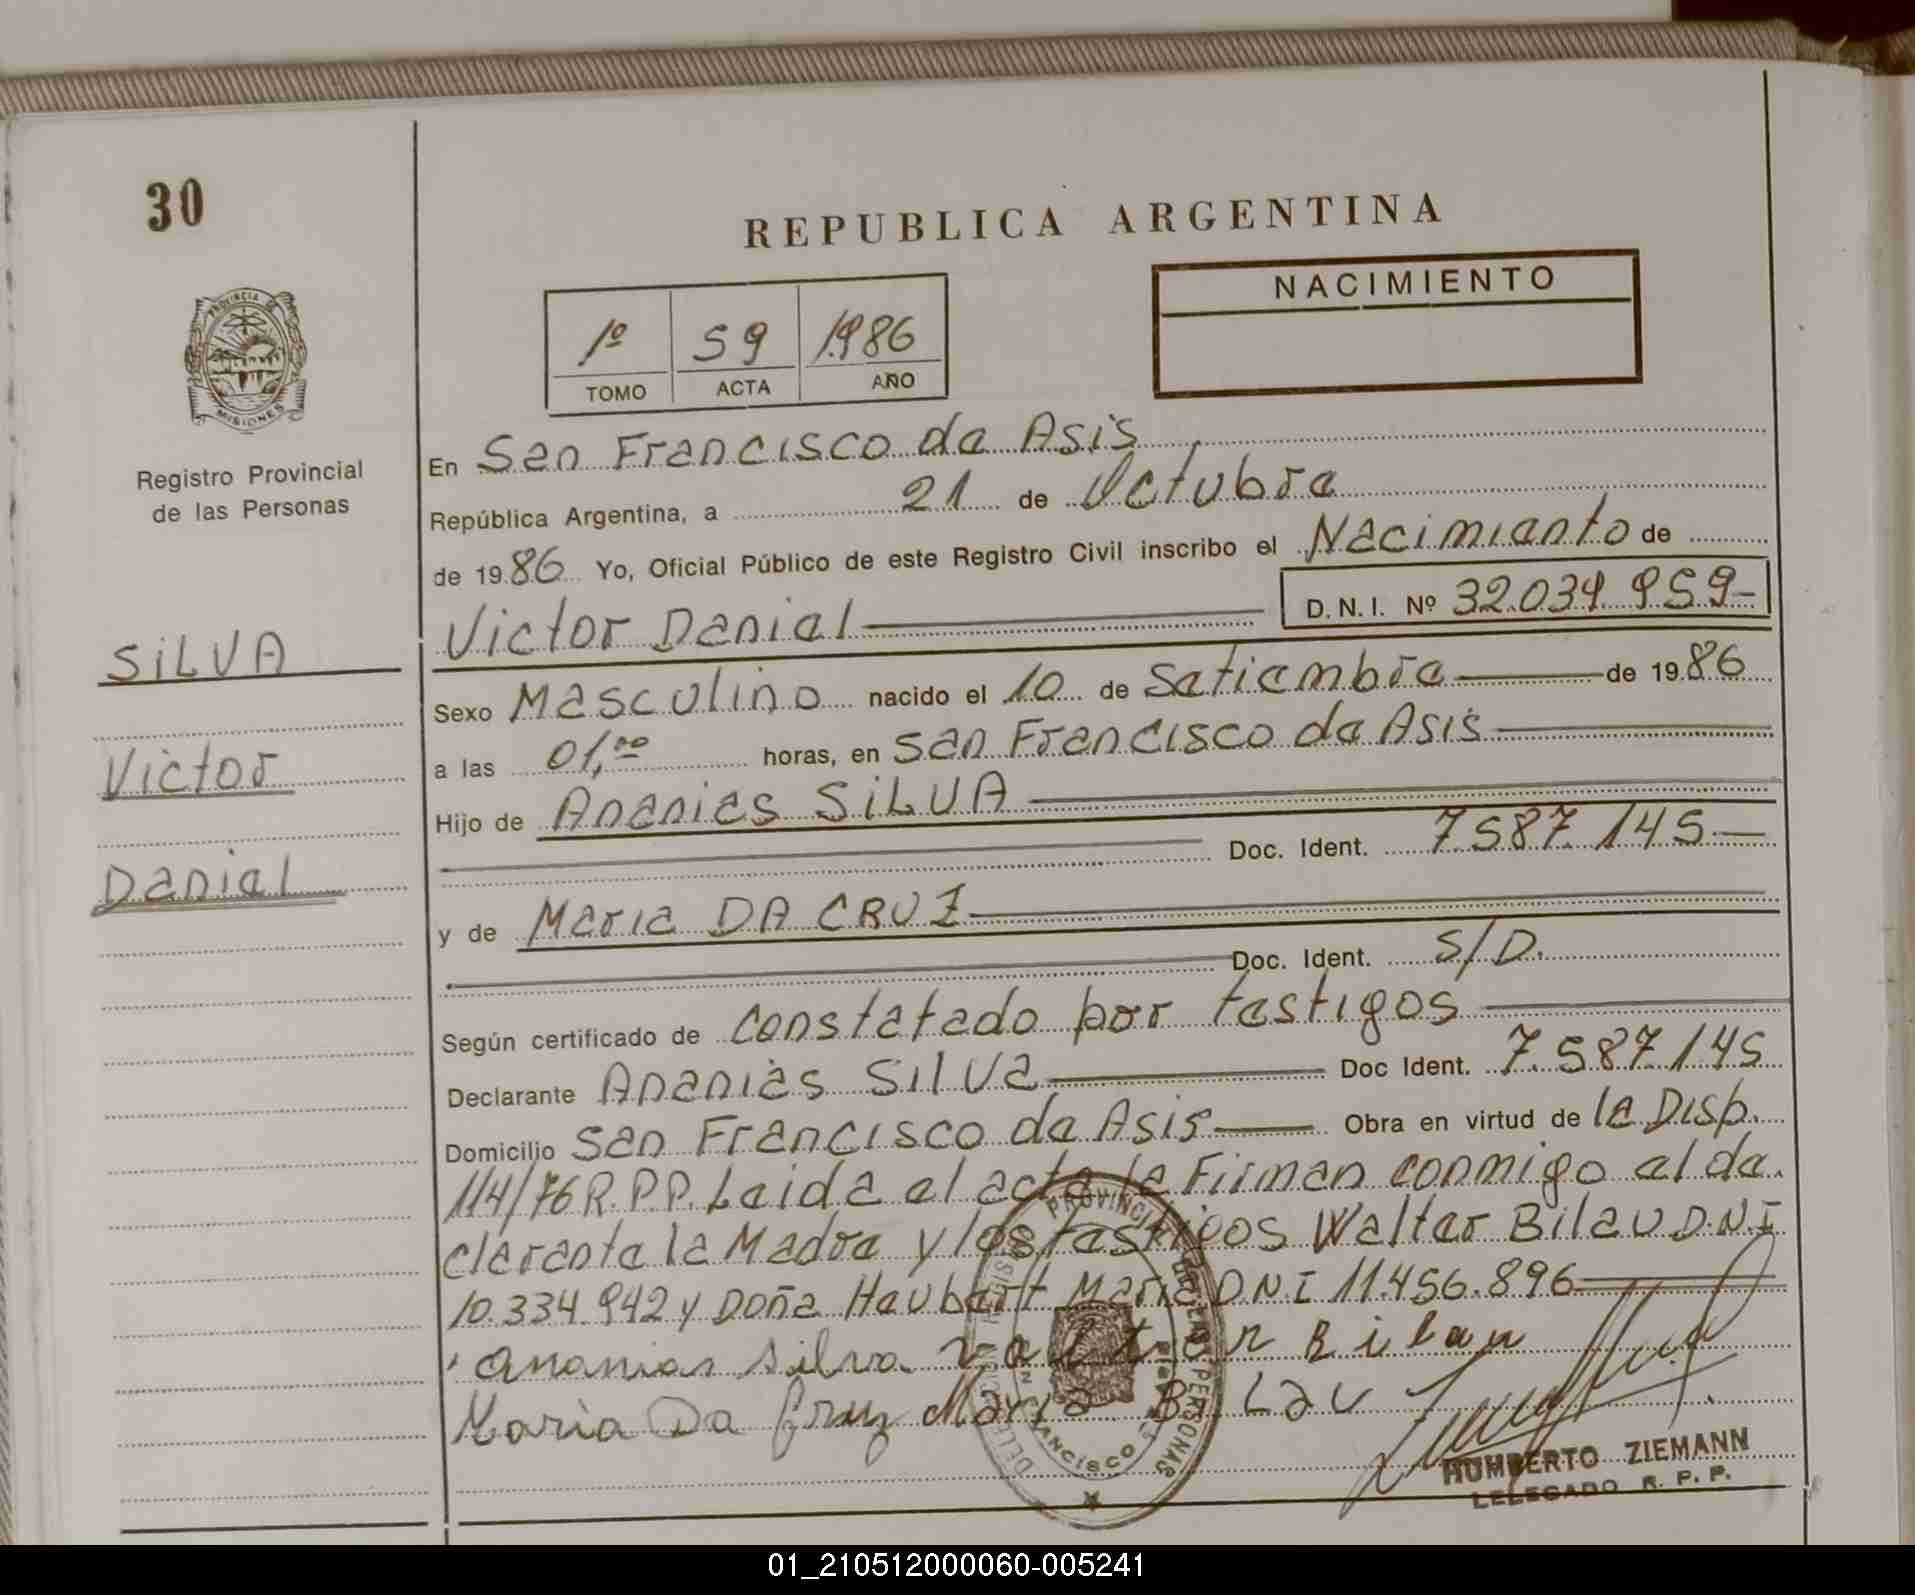 30
REPUBLICA ARGENTINA
NACIMIENTO
1º 59 1986
TOMO ACTA AÑO
PROVINCIA DE
MISIONES
Registro Provincial
de las Personas
SILVA
Victor
Daniel
En San Francisco de Asis
República Argentina, a 21 de Octubre
de 1986 Yo, Oficial Público de este Registro Civil inscribo el Nacimiento de
Victor Daniel D.N.I. Nº 32.034.959-
Sexo Masculino nacido el 10 de Setiembre de 1986
a las 01,00 horas, en San Francisco de Asis
Hijo de Ananias SILVA
Doc. Ident. 7.587.145
y de Maria DA CRUZ
Doc. Ident. S/D.
Según certificado de Constatado por testigos
Declarante Ananias Silva Doc Ident. 7.587.145
Domicilio San Francisco de Asis Obra en virtud de la Disp.
114/76 R.P.P. Leida el acta la Firman conmigo el de
clarante la Madre y los testigos Walter Bilau D.N.I
10.334.942 y Doña Haubert Maria D.N.I 11.456.896
Ananias Silva Valter Bilau
Maria Da Cruz Maria Bilau
HUMBERTO ZIEMANN
DELEGADO R. P. P.
01_210512000060-005241